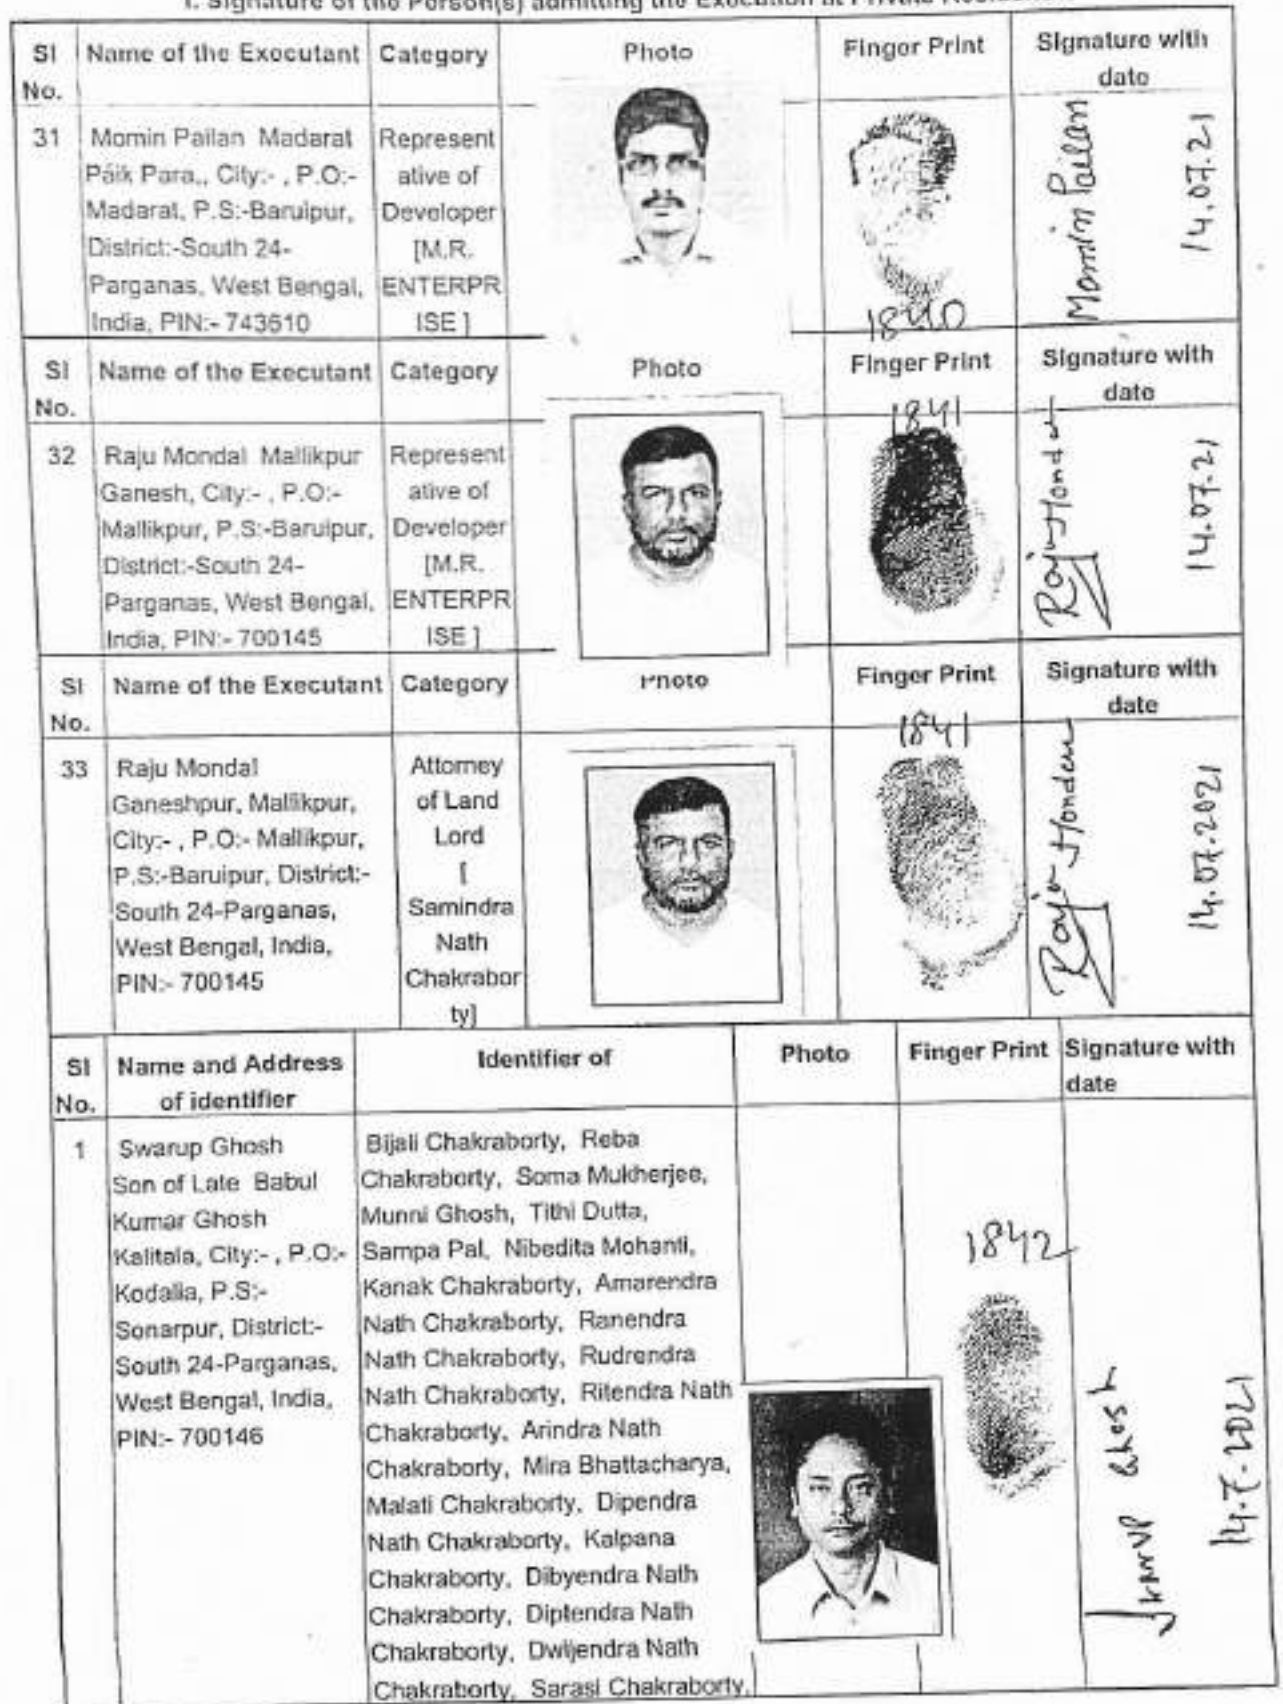 I. Signature of the Person(s) admitting the Execution at Private Residence.
Sl No. Name of the Executant Category Photo Finger Print Signature with date
31 Momin Pailan Madarat Represent
Paik Para,, City:- , P.O:- ative of
Madarat, P.S:-Baruipur, Developer
District:-South 24- [M.R.
Parganas, West Bengal, ENTERPR
India, PIN:- 743610 ISE ]
1840
Momin Pailan
14.07.21
Sl No. Name of the Executant Category Photo Finger Print Signature with date
32 Raju Mondal Mallikpur Represent
Ganesh, City:- , P.O:- ative of
Mallikpur, P.S:-Baruipur, Developer
District:-South 24- [M.R.
Parganas, West Bengal, ENTERPR
India, PIN:- 700145 ISE ]
1841
Raju Mondal
14.07.21
Sl No. Name of the Executant Category Photo Finger Print Signature with date
33 Raju Mondal Attorney
Ganeshpur, Mallikpur, of Land
City:- , P.O:- Mallikpur, Lord
P.S:-Baruipur, District:- [
South 24-Parganas, Samindra
West Bengal, India, Nath
PIN:- 700145 Chakrabor
ty]
1841
Raju Mondal
14.07.2021
Sl No. Name and Address of identifier Identifier of Photo Finger Print Signature with date
1 Swarup Ghosh
Son of Late Babul
Kumar Ghosh
Kalitala, City:- , P.O:-
Kodalia, P.S:-
Sonarpur, District:-
South 24-Parganas,
West Bengal, India,
PIN:- 700146
Bijali Chakraborty, Reba
Chakraborty, Soma Mukherjee,
Munni Ghosh, Tithi Dutta,
Sampa Pal, Nibedita Mohanti,
Kanak Chakraborty, Amarendra
Nath Chakraborty, Ranendra
Nath Chakraborty, Rudrendra
Nath Chakraborty, Ritendra Nath
Chakraborty, Arindra Nath
Chakraborty, Mira Bhattacharya,
Malati Chakraborty, Dipendra
Nath Chakraborty, Kalpana
Chakraborty, Dibyendra Nath
Chakraborty, Diptendra Nath
Chakraborty, Dwijendra Nath
Chakraborty, Sarasi Chakraborty,
1842
Swarup Ghosh
14.7.2021